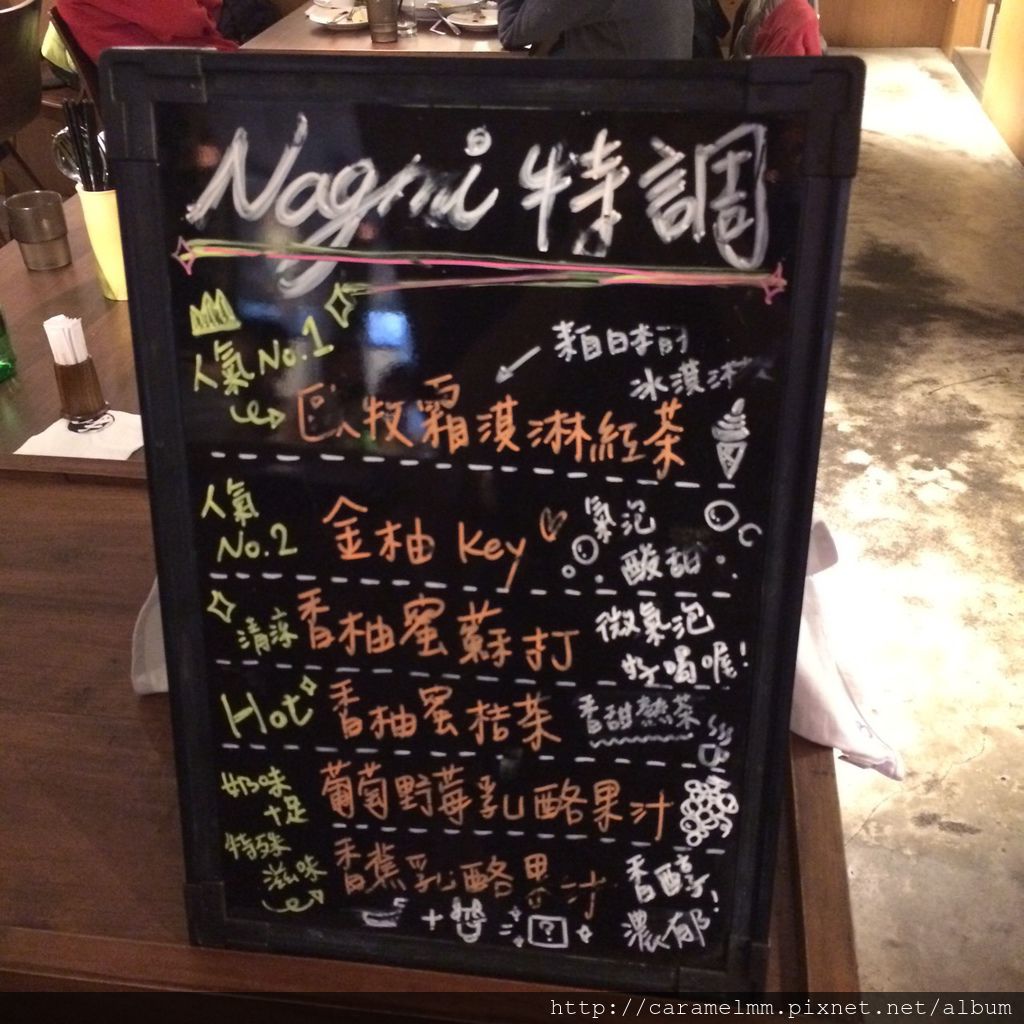 Nagmi 特調
人氣 No.1
來自日本的
冰淇淋
歐牧霜淇淋紅茶
人氣
No.2
金柚 Key
氣泡
酸甜
清涼
香柚蜜蘇打
微氣泡
好喝喔!
Hot
香柚蜜桔茶
香甜熱茶
奶味
十足
葡萄野莓乳酪果汁
特殊
滋味
香蕉乳酪果汁
香醇!
濃郁
+ = ?
http://caramelmm.pixnet.net/album